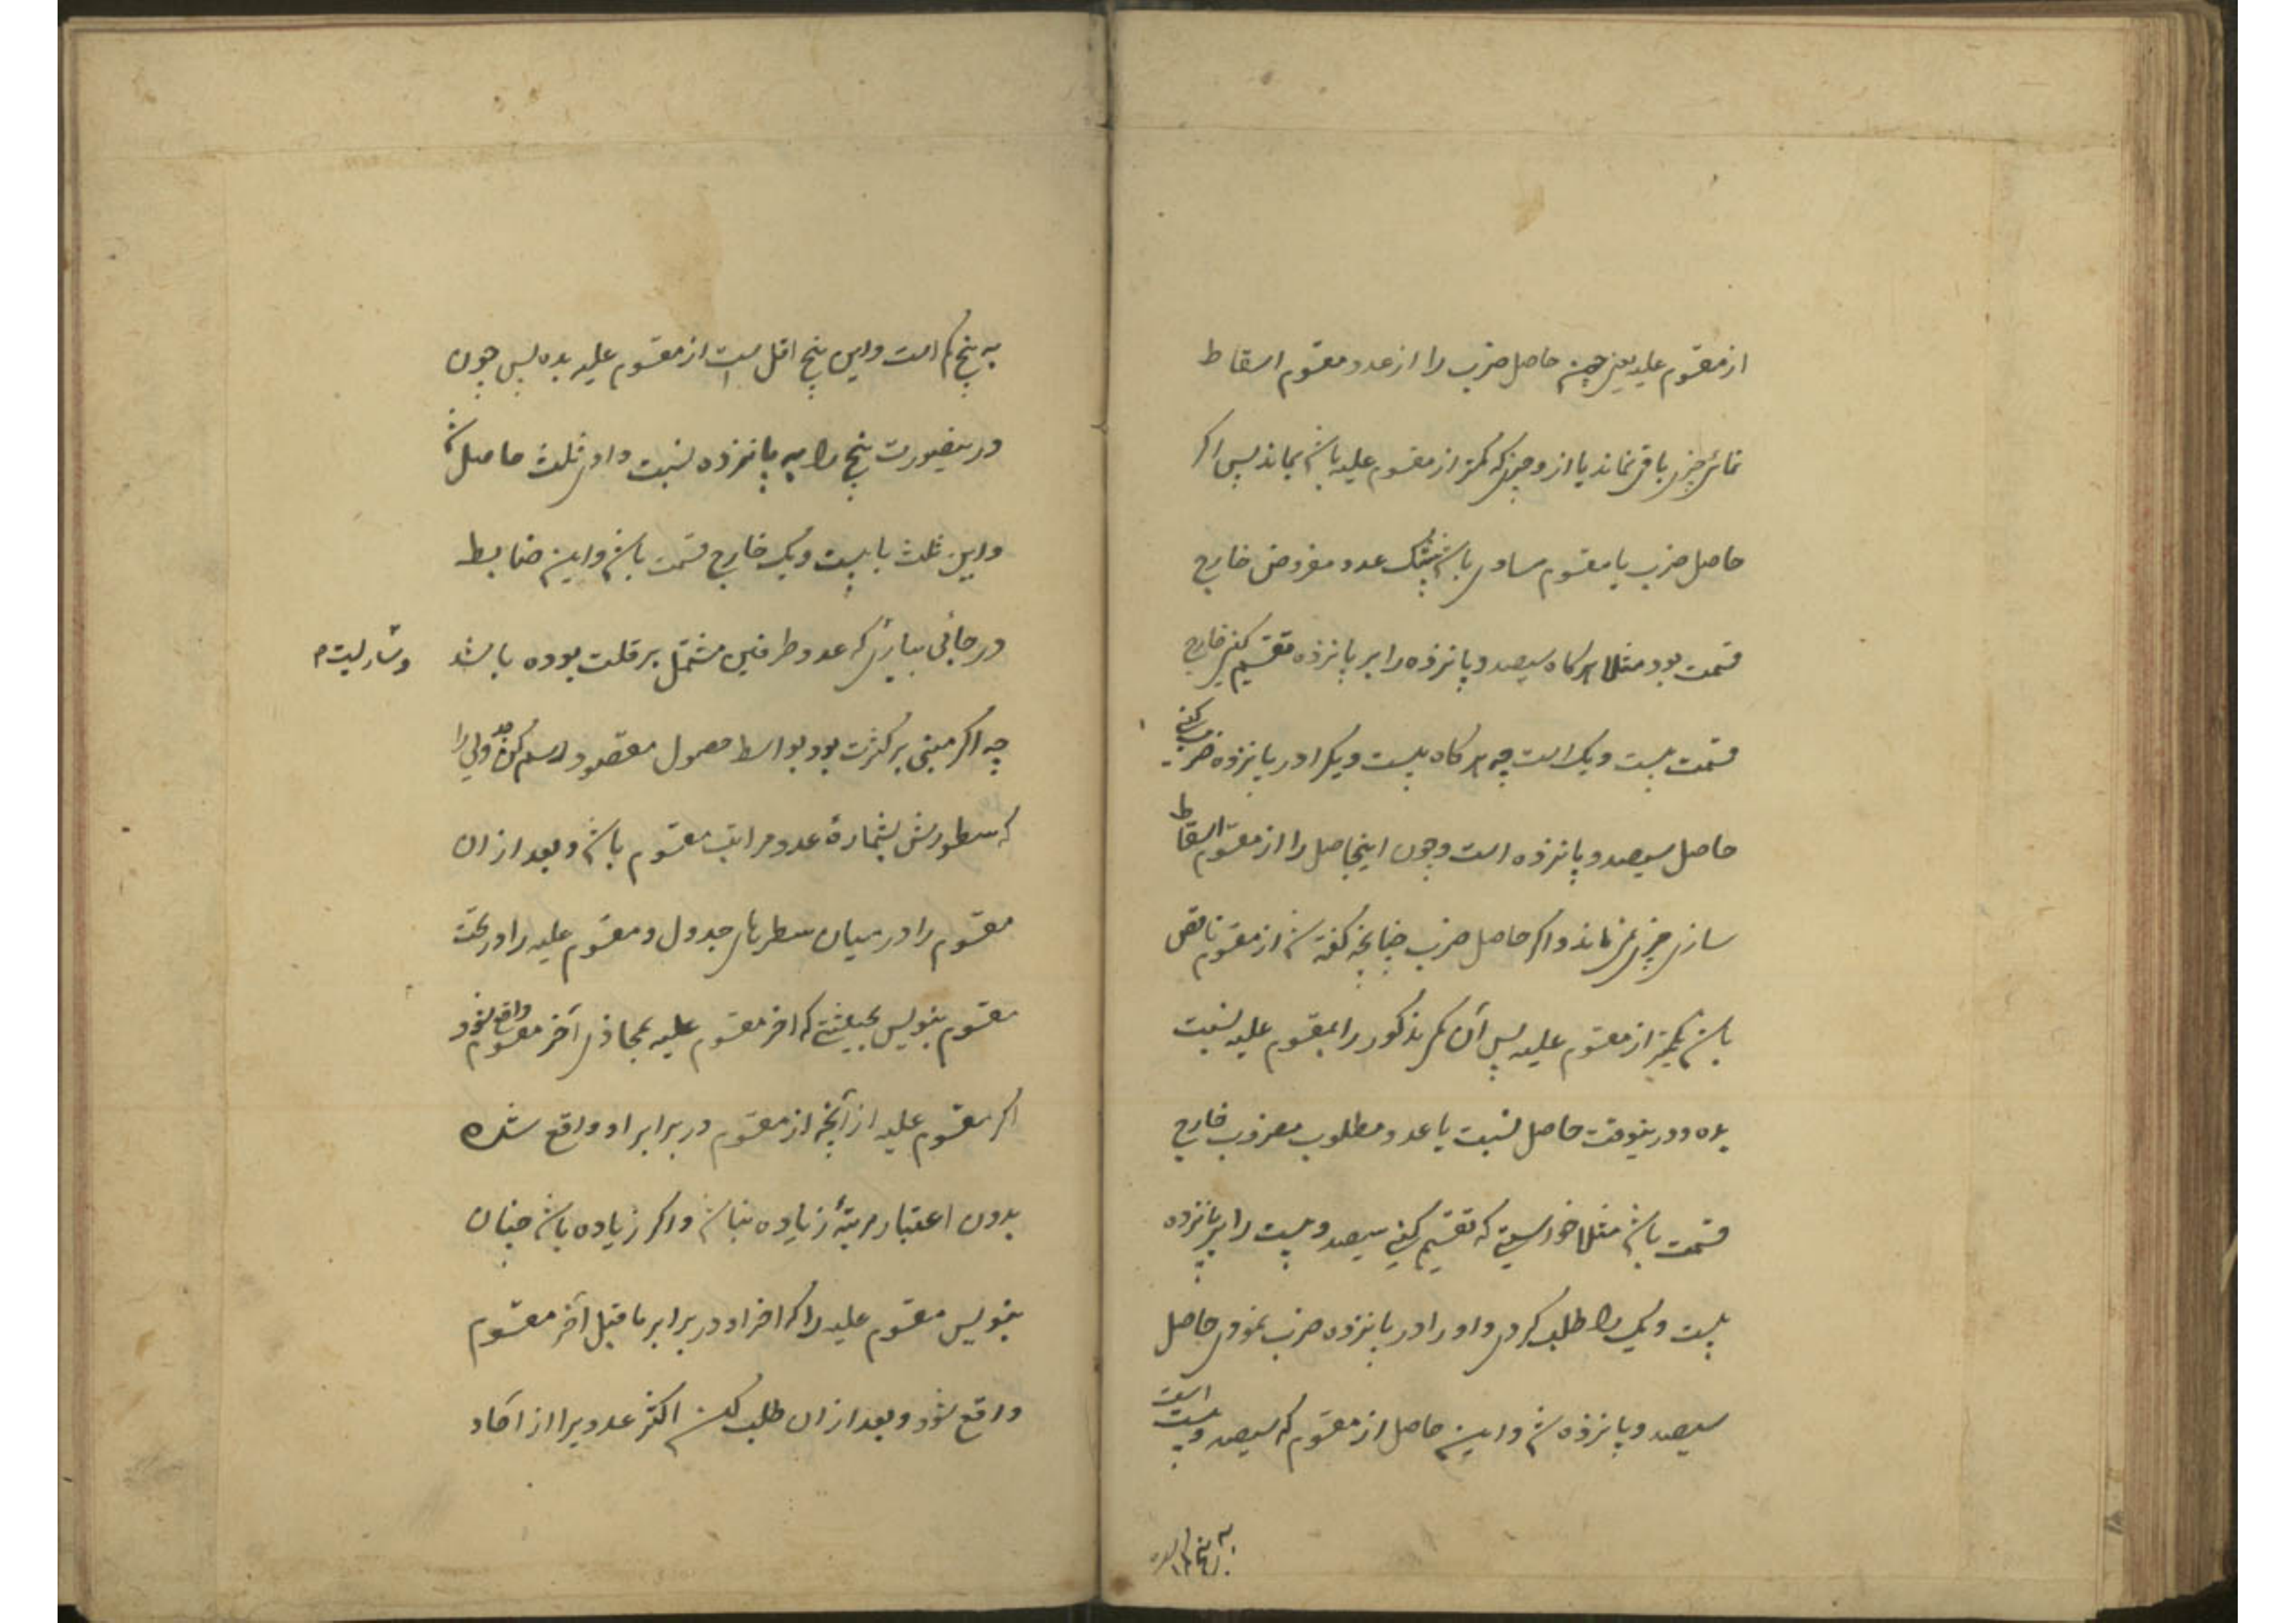 از مقسوم علیه یعنی چون حاصل ضرب را از عدد مقسوم اسقاط
نمائی چیزی باقی نماند یا ازو چیزی که کمتر از مقسوم علیه باشد بماند پس اکر
حاصل ضرب با مقسوم مساوی باشد بیشک عدد مفروض خارج
قسمت بود مثلا هرکاه سیصد و پانزده را بر پانزده تقسیم کنی خارج
قسمت بیست و یک است چه هرکاه بیست و یکرا در پانزده ضرب کنی
حاصل سیصد و پانزده است و چون اینحاصل را از مقسوم اسقاط
سازی چیزی نمی ماند و اکر حاصل ضرب چنانچه کفته شد از مقسوم ناقص
باشد بکمتر از مقسوم علیه پس آن کم مذکور را بمقسوم علیه نسبت
بده و درینوقت حاصل نسبت با عدد مطلوب مضروب خارج
قسمت باشد مثلا خواستی که تقسیم کنی سیصد و بیست را بر پانزده
بیست و یک را طلب کردی و او را در پانزده ضرب نمودی حاصل
سیصد و پانزده شد و این حاصل از مقسوم که سیصد و بیست است
به پنج کم است
به پنج کم است و این پنج اقل است از مقسوم علیه بده پس چون
درینصورت پنج را به پانزده نسبت دادی ثلث حاصل شد
و این ثلث با بیست و یک خارج قسمت باشد و این ضابط
در جائی بیاری که عدد طرفین مشتمل بر قلت بوده باشد
چه اکر مبنی بر کثرت بود بواسط حصول مقصود رسم کن جدولی را
که سطورش بشمارهٔ عدد مراتب مقسوم باشد و بعد از ان
مقسوم را در میان سطرهای جدول و مقسوم علیه را در تحت
مقسوم بنویس بحیثیتی که اخر مقسوم علیه بمحاذی آخر مقسوم واقع شود
اکر مقسوم علیه از آنچه از مقسوم در برابر او واقع شده
بدون اعتبار مرتبهٔ زیاده نباشد و اکر زیاده باشد چنان
بنویس مقسوم علیه را که اخر او در برابر ما قبل آخر مقسوم
واقع شود و بعد از ان طلب کن اکثر عددیرا از آحاد